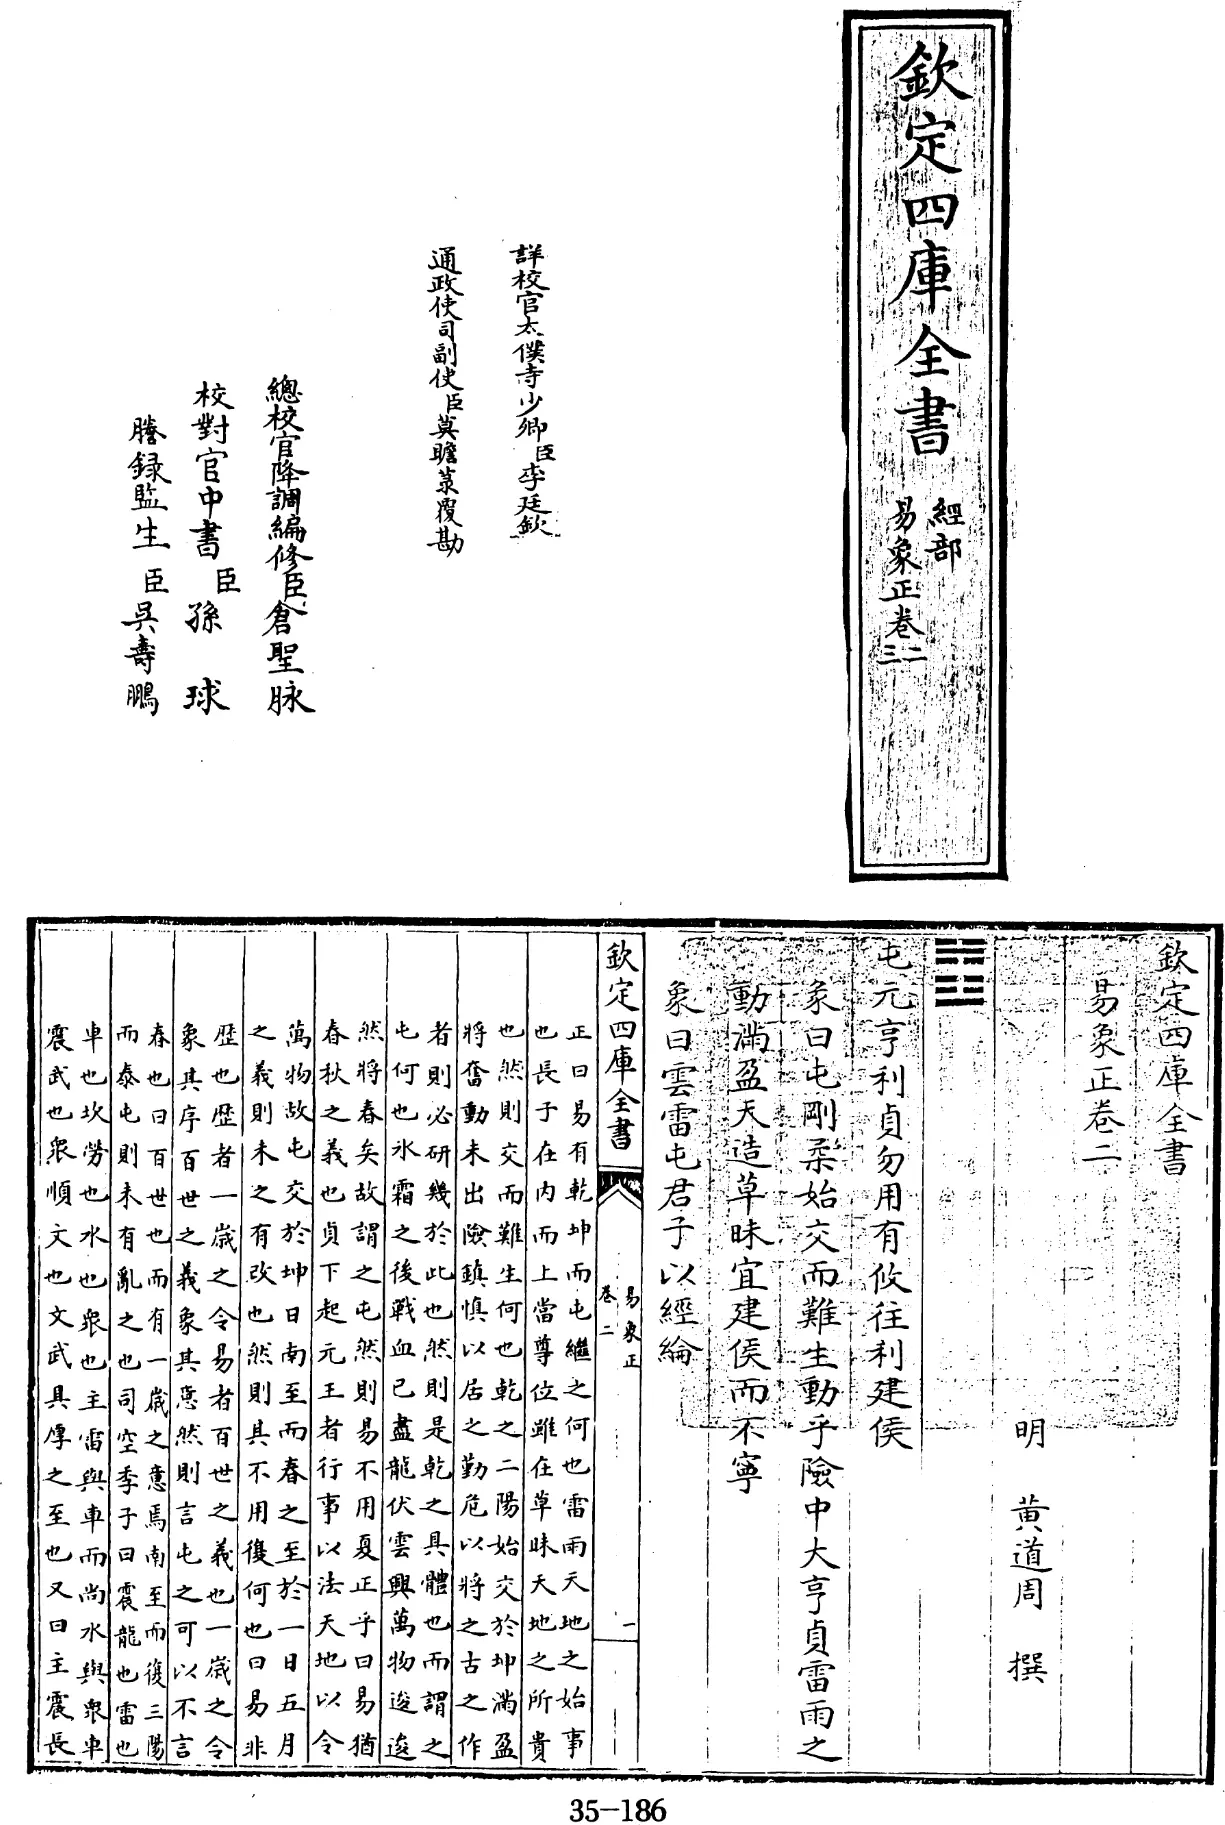 欽定四庫全書
經部
易象正卷二三
詳校官太僕寺少卿臣李廷欽
通政使司副使臣莫瞻菉覆勘
總校官降調編修臣倉聖脉
校對官中書臣孫球
謄錄監生臣吳壽鵬
欽定四庫全書
易象正卷二
明 黃道周 撰
屯元亨利貞勿用有攸往利建侯
彖曰屯剛柔始交而難生動乎險中大亨貞雷雨之
動滿盈天造草昧宜建侯而不寧
象曰雲雷屯君子以經綸
欽定四庫全書
易象正
卷二
一
正曰易有乾坤而屯繼之何也雷雨天地之始事
也長子在内而上當尊位雖在草昧天地之所貴
也然則交而難生何也乾之二陽始交於坤滿盈
將奮動未出險鎮慎以居之勤危以將之古之作
者則必研幾於此也然則是乾之具體也而謂之
屯何也氷霜之後戰血已盡龍伏雲興萬物逡逡
然將春矣故謂之屯然則易不用夏正乎曰易猶
春秋之義也貞下起元王者行事以法天地以令
萬物故屯交於坤日南至而春之至於一日五月
之義則未之有改也然則其不用復何也曰易非
歴也歴者一歳之令易者百世之義也一歳之令
象其序百世之義象其意然則言屯之可以不言
春也曰百世也而有一歳之意焉南至而復三陽
而泰屯則未有亂之也司空季子曰震龍也雷也
車也坎勞也水也衆也主雷與車而尚水與衆車
震武也衆順文也文武具厚之至也又曰主震長
35-186